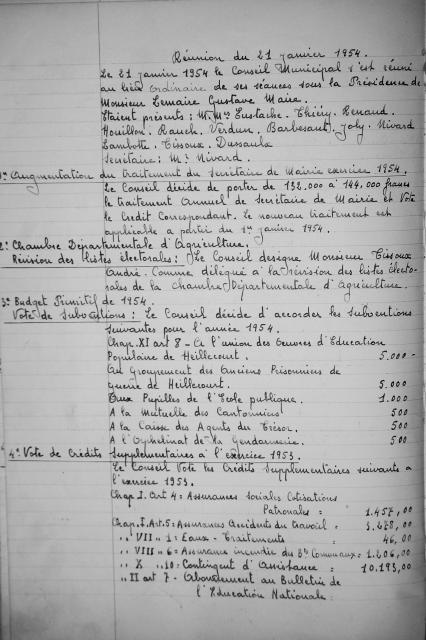 Réunion du 21 janvier 1954.
Le 21 janvier 1954 le Conseil Municipal s'est réuni
au lieu ordinaire de ses séances sous la Présidence de
Monsieur Lemaire Gustave Maire.
Etaient présents : M.Mrs Eustache. Thiéry. Renaud.
Houillon. Rauch. Verdun. Barbesant. Joly. Nivard
Lambotte. Tissoux. Dussaulx
Secrétaire : Mr Nivard.
1° Augmentation du traitement du Secrétaire de Mairie exercice 1954.
Le Conseil décide de porter de 132.000 à 144.000 francs
le traitement Annuel de Secrétaire de Mairie et Vote
le Crédit Correspondant. Le nouveau traitement est
applicable à partir du 1er janvier 1954.
2° Chambre Départementale d'Agriculture.
Révision des listes électorales : Le Conseil désigne Monsieur Tissoux
André. Comme délégué à la révision des listes électo-
rales de la Chambre Départementale d'Agriculture.
3° Budget Primitif de 1954.
Vote de Subventions : Le Conseil décide d'accorder les Subventions
suivantes pour l'année 1954.
Chap. XI art 8 - A l'union des Oeuvres d'Education
Populaire de Heillecourt. 5.000 -
Au Groupement des Anciens Prisonniers de
guerre de Heillecourt. 5.000
Aux Pupilles de l'Ecole publique. 1.000
A la Mutuelle des Cantonniers 500
A la Caisse des Agents du Trésor. 500
A l'Orphelinat de la Gendarmerie. 500
4° Vote de Crédits Supplémentaires à l'exercice 1953.
Le Conseil Vote les Crédits Supplémentaires suivants à
l'exercice 1953.
Chap I. Art 4 = Assurances sociales Cotisations
Patronales = 1.457,00
Chap. I. Art. 5 = Assurances Accidents du travail = 3.278,00
" VIII " 1 = Eaux - Traitements = 46,00
" VIII " 6 = Assurance incendie des Bts Communaux = 1.206,00
" X " 10 = Contingent d'Assistance = 10.193,00
" II art 7 - Abonnement au Bulletin de
l'Education Nationale.